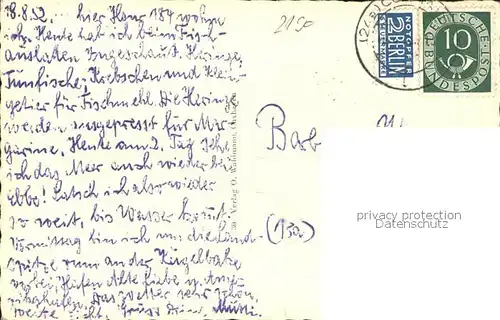 18.8.52. ... hier Haus 187 wohne
ich. Heute hab ich beim Fisch-
ausladen zugeschaut. Heringe,
Tunfische, Krebschen und Klein-
getier für Fischmehl. Die Heringe
werden ausgepresst für Mar-
garine. Heute am 2. Tag sehe
ich das Meer auch wieder bei
Ebbe! Latsch ich also wieder
so weit, bis Wasser kommt.
Vormittag bin ich um die Land-
spitze rum an der Kugelbake
vorbei, Hafen Alte Liebe u.
Das Wetter war schön,
weite Sicht. Gruss Dein, Mutti.
2150
Verlag O.
NOTOPFER
2 BERLIN
STEUERMARKE
DEUTSCHE
BUNDESPOST
10
Barb
(13a)
privacy protection
Datenschutz